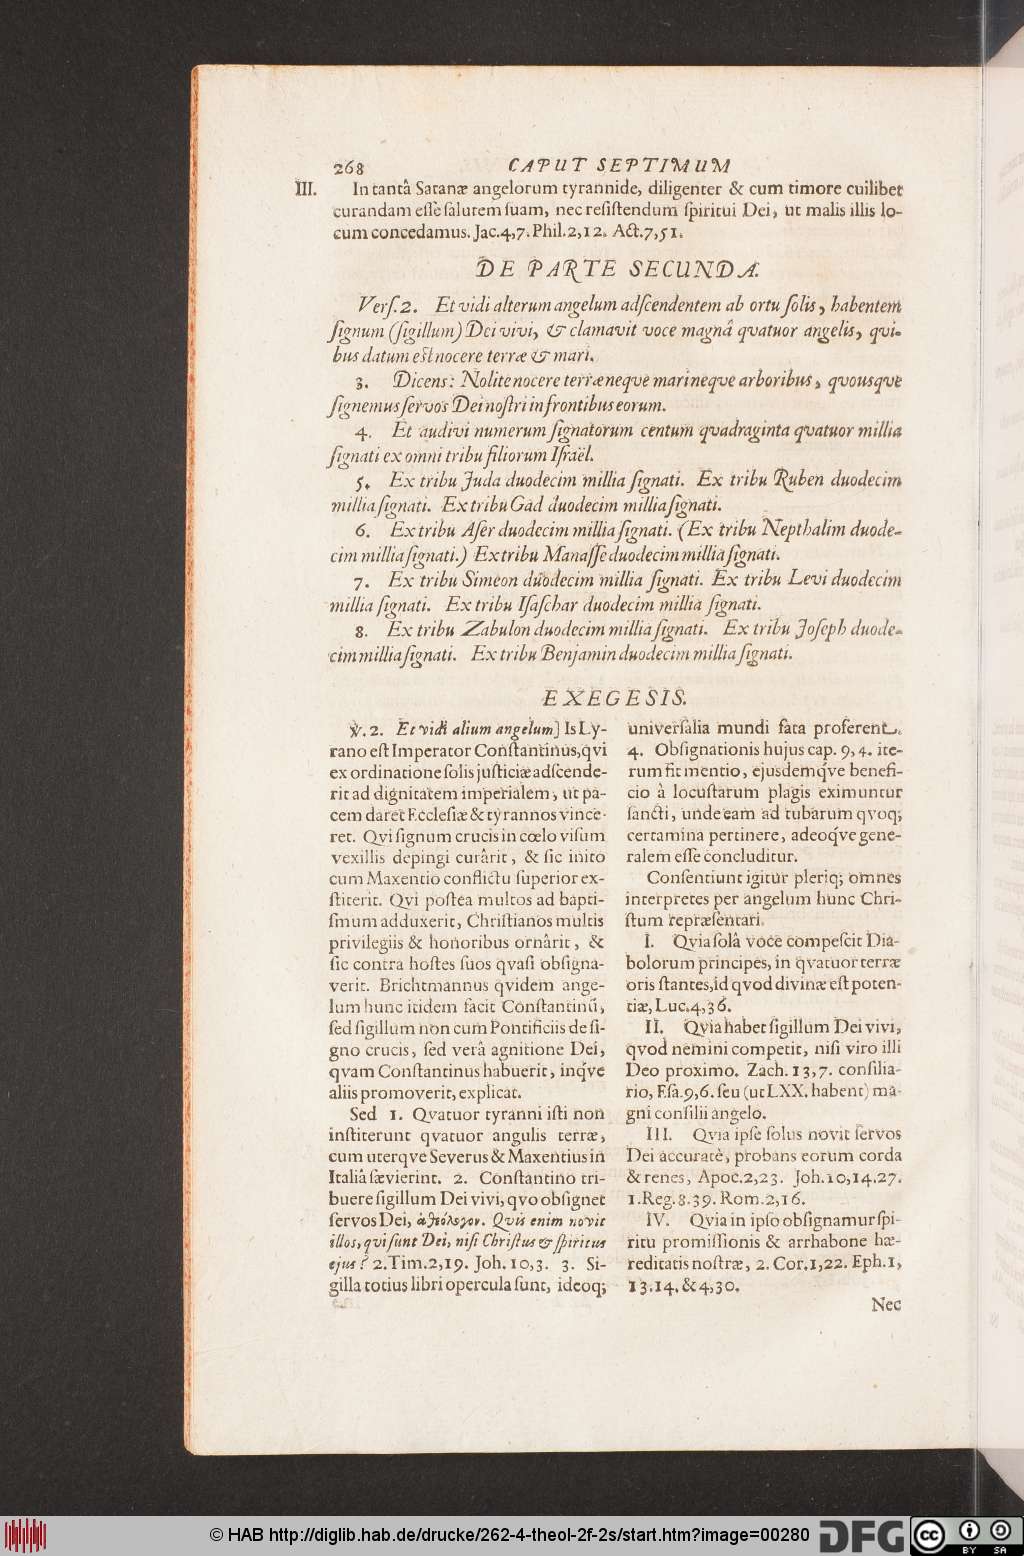 268 CAPUT SEPTIMUM
III. In tantâ Satanæ angelorum tyrannide, diligenter & cum timore cuilibet
curandam esse salutem suam, nec resistendum spiritui Dei, ut malis illis lo-
cum concedamus. Jac.4,7. Phil.2,12. Act.7,51.
DE PARTE SECUNDA.
Vers.2. Et vidi alterum angelum adscendentem ab ortu solis, habentem
signum (sigillum) Dei vivi, & clamavit voce magnâ qvatuor angelis, qvi-
bus datum est nocere terræ & mari.
3. Dicens: Nolite nocere terræ neque mari neque arboribus, quousque
signemus servos Dei nostri in frontibus eorum.
4. Et audivi numerum signatorum centum quadraginta qvatuor millia
signati ex omni tribu filiorum Israël.
5. Ex tribu Juda duodecim millia signati. Ex tribu Ruben duodecim
millia signati. Ex tribu Gad duodecim millia signati.
6. Ex tribu Aser duodecim millia signati. (Ex tribu Nepthalim duode-
cim millia signati.) Ex tribu Manasse duodecim millia signati.
7. Ex tribu Simeon duodecim millia signati. Ex tribu Levi duodecim
millia signati. Ex tribu Isaschar duodecim millia signati.
8. Ex tribu Zabulon duodecim millia signati. Ex tribu Joseph duode-
cim millia signati. Ex tribu Benjamin duodecim millia signati.
EXEGESIS.
℣.2. Et vidi alium angelum] Is Ly-
rano est Imperator Constantinus, qvi
ex ordinatione solis justiciæ adscende-
rit ad dignitatem imperialem, ut pa-
cem daret Ecclesiæ & tyrannos vince-
ret. Qvi signum crucis in cœlo visum
vexillis depingi curârit, & sic inito
cum Maxentio conflictu superior ex-
stiterit. Qvi postea multos ad bapti-
smum adduxerit, Christianos multis
privilegiis & honoribus ornârit, &
sic contra hostes suos qvasi obsigna-
verit. Brichtmannus qvidem ange-
lum hunc itidem facit Constantinū,
sed sigillum non cum Pontificiis de si-
gno crucis, sed verâ agnitione Dei,
qvam Constantinus habuerit, inq́ve
aliis promoverit, explicat.
Sed 1. Qvatuor tyranni isti non
institerunt qvatuor angulis terræ,
cum uterqve Severus & Maxentius in
Italiâ sævierint. 2. Constantino tri-
buere sigillum Dei vivi, qvo obsignet
servos Dei, ἀθεόλογον. Qvis enim novit
illos, qvi sunt Dei, nisi Christus & spiritus
ejus? 2.Tim.2,19. Joh.10,3. 3. Si-
gilla totius libri opercula sunt, ideoq;
universalia mundi fata proferent.
4. Obsignationis hujus cap. 9,4. ite-
rum fit mentio, ejusdemq́ve benefi-
cio à locustarum plagis eximuntur
sancti, unde eam ad tubarum qvoq;
certamina pertinere, adeoq́ve gene-
ralem esse concluditur.
Consentiunt igitur pleriq; omnes
interpretes per angelum hunc Chri-
stum repræsentari.
I. Qvia solâ voce compescit Dia-
bolorum principes, in qvatuor terræ
oris stantes, id qvod divinæ est poten-
tiæ, Luc.4,36.
II. Qvia habet sigillum Dei vivi,
qvod nemini competit, nisi viro illi
Deo proximo. Zach.13,7. consilia-
rio, Esa.9,6. seu (ut LXX. habent) ma-
gni consilii angelo.
III. Qvia ipse solus novit servos
Dei accuratè, probans eorum corda
& renes, Apoc.2,23. Joh.10,14.27.
1.Reg.8.39. Rom.2,16.
IV. Qvia in ipso obsignamur spi-
ritu promissionis & arrhabone hæ-
reditatis nostræ, 2.Cor.1,22. Eph.1,
13.14. & 4,30.
Nec
© HAB http://diglib.hab.de/drucke/262-4-theol-2f-2s/start.htm?image=00280 DFG cc BY SA